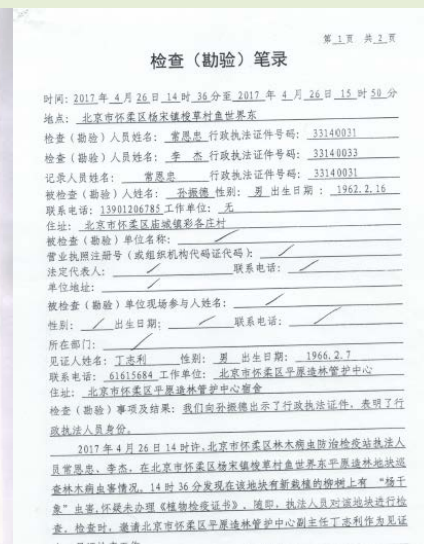 第 1 页 共 2 页
检查（勘验）笔录
时间：2017 年 4 月 26 日 14 时 36 分至 2017 年 4 月 26 日 15 时 50 分
地点：北京市怀柔区杨宋镇梭草村鱼世界东
检查（勘验）人员姓名：常恩忠 行政执法证件号码：33140031
检查（勘验）人员姓名：李 杰 行政执法证件号码：33140033
记录人员姓名：常恩忠 行政执法证件号码：33140031
被检查（勘验）人姓名：孙振德 性别：男 出生日期：1962.2.16
联系电话：13901206785 工作单位：无
住址：北京市怀柔区庙城镇彩各庄村
被检查（勘验）单位名称：
营业执照注册号（或组织机构代码证代码）：
法定代表人： 联系电话：
单位地址：
被检查（勘验）单位现场参与人姓名：
性别： 出生日期： 联系电话：
所在部门：
见证人姓名：丁志利 性别：男 出生日期：1966.2.7
联系电话：61615684 工作单位：北京市怀柔区平原造林管护中心
住址：北京市怀柔区平原造林管护中心宿舍
检查（勘验）事项及结果：我们向孙振德出示了行政执法证件，表明了行
政执法人员身份。
2017 年 4 月 26 日 14 时许，北京市怀柔区林木病虫防治检疫站执法人
员常恩忠、李杰，在北京市怀柔区杨宋镇梭草村鱼世界东平原造林地块巡
查林木病虫害情况，14 时 36 分发现在该地块有新栽植的柳树上有 “杨干
象”虫害，怀疑未办理《植物检疫证书》。随即，执法人员对该地块进行检
查，检查时，邀请北京市怀柔区平原造林管护中心副主任丁志利作为见证